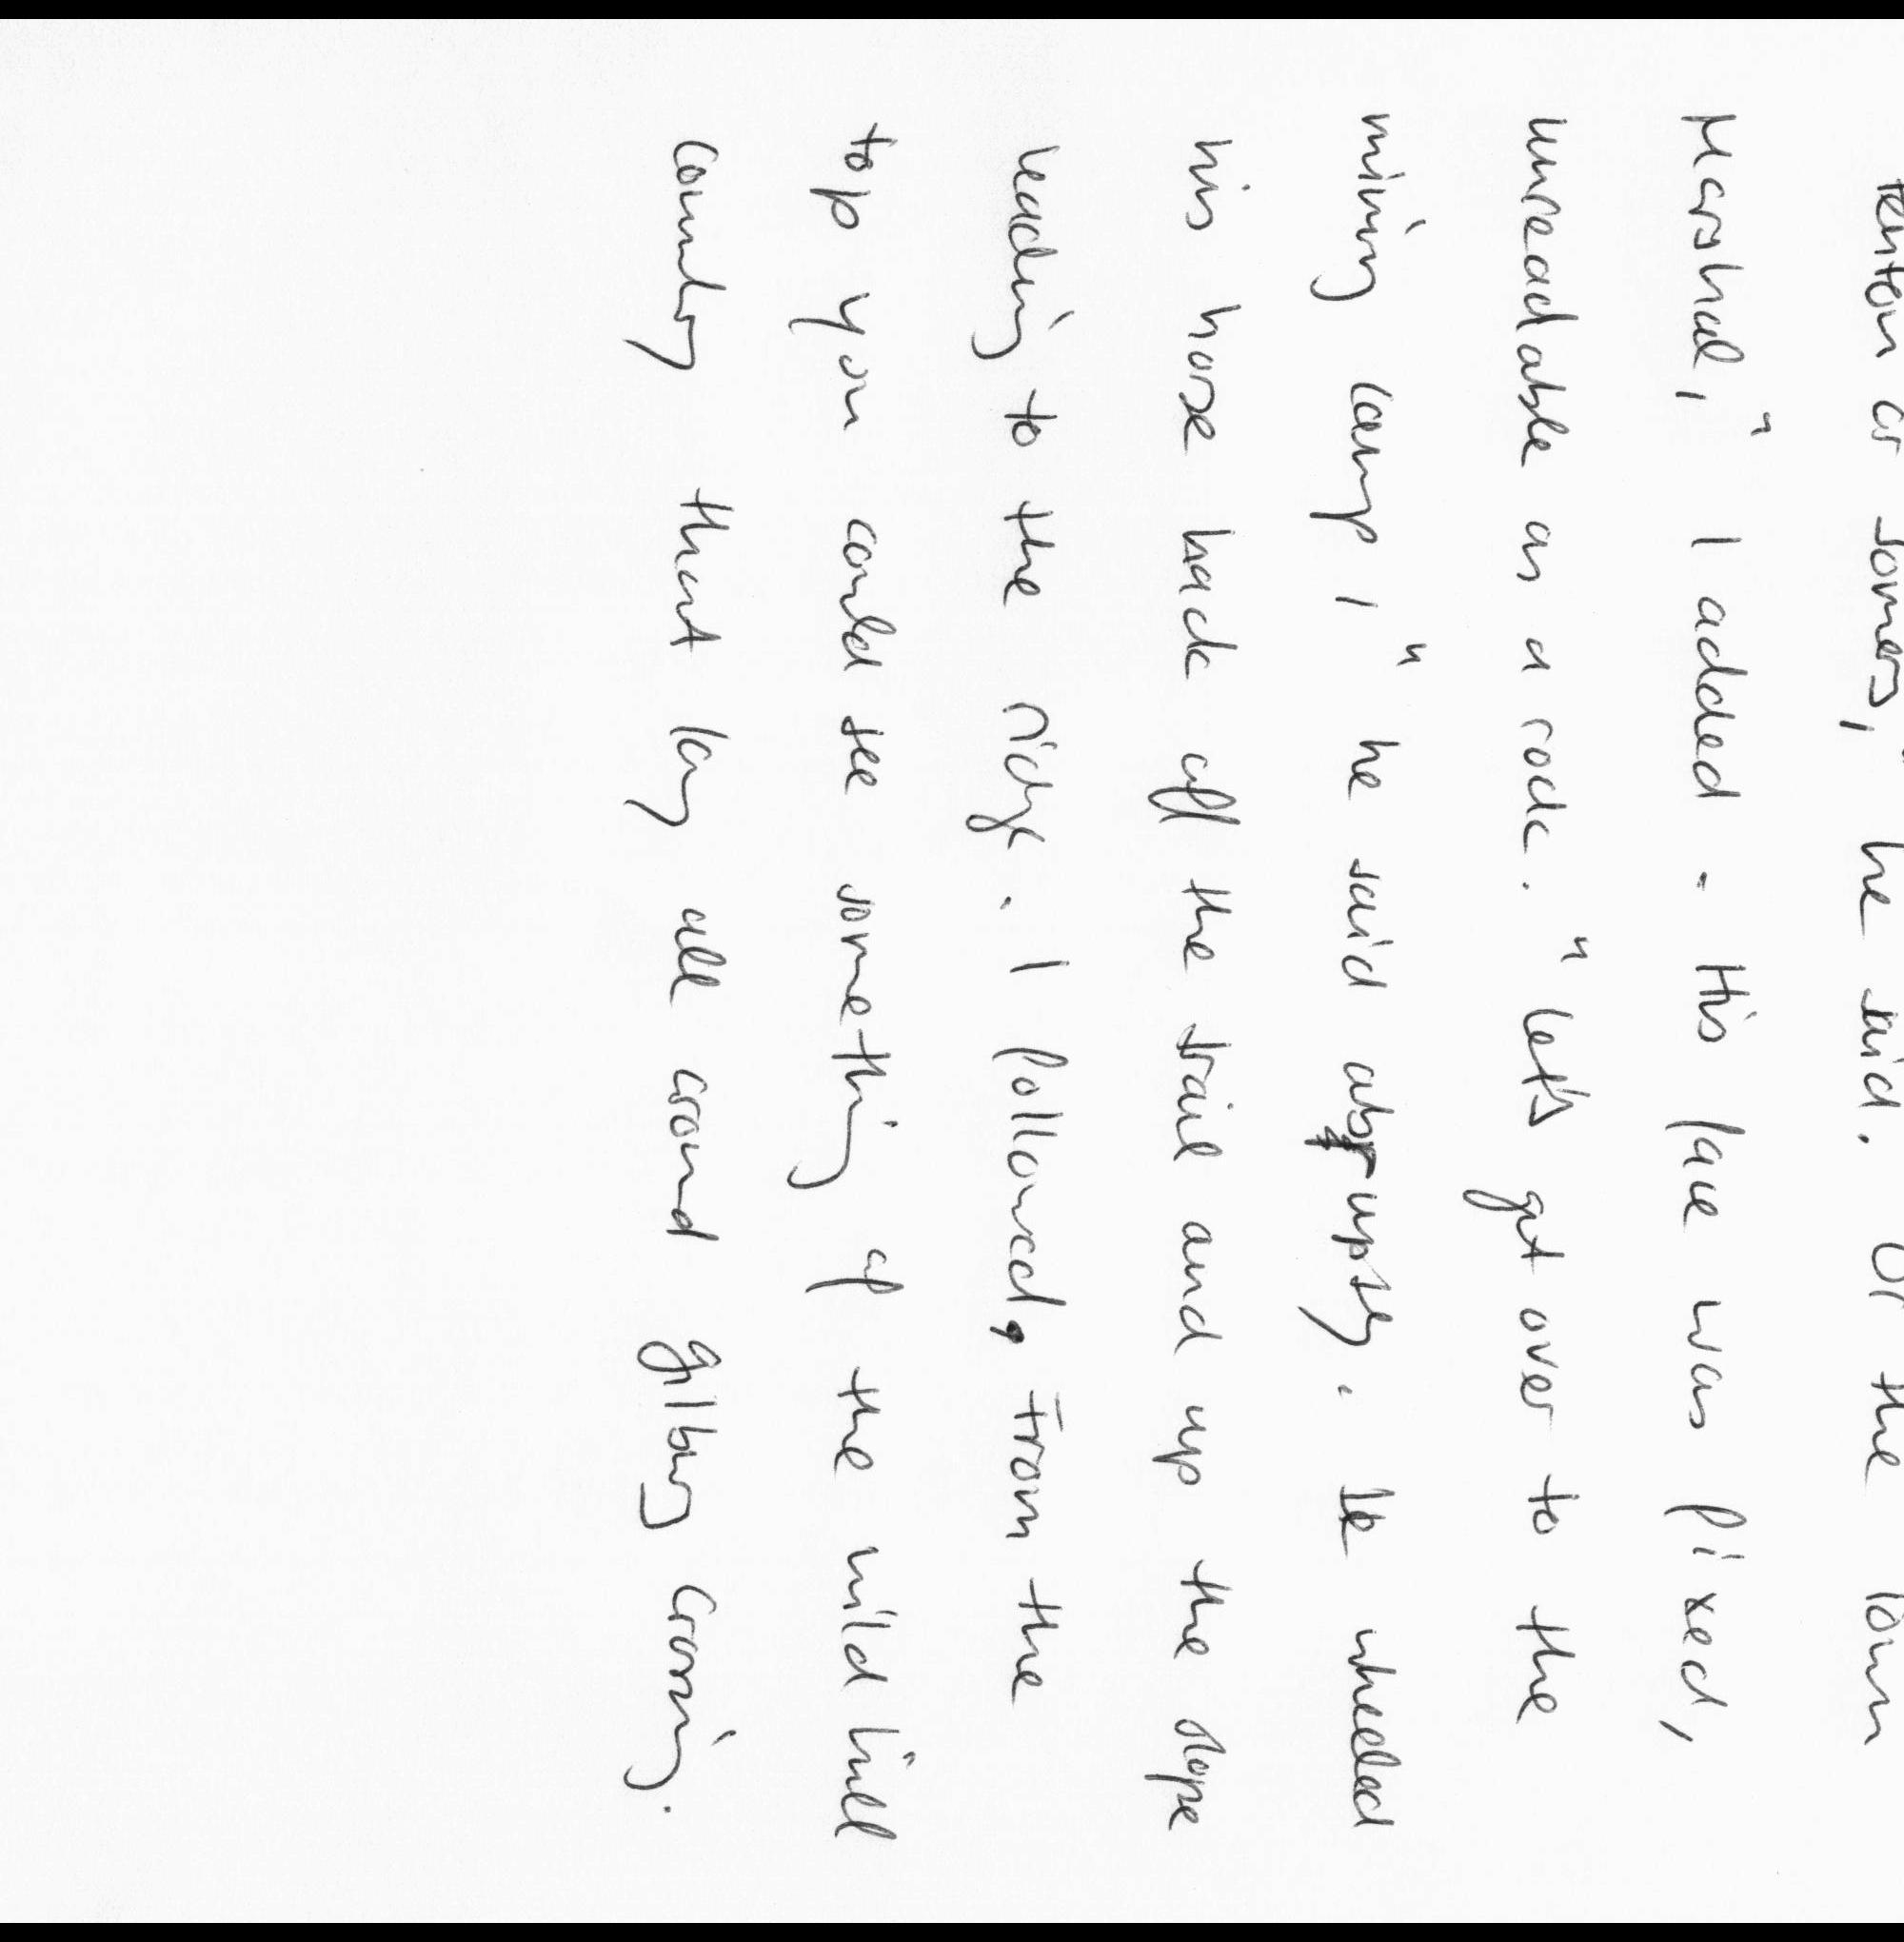 Fenton or Somers," he said. "Or the Town
Marshal," I added. His face was fixed,
unreadable as a rock. "Let's get over to the
mining camp," he said abruptly. He wheeled
his horse back off the trail and up the slope
leading to the ridge. I followed, From the
top you could see something of the wild hill
country that lay all around Gilbury Crossing.